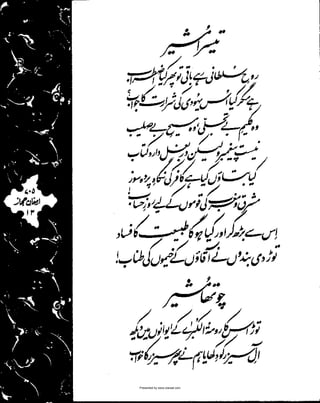 تیسرا مشیر
روحِ سلطانی رہے باقی تو پھر کیا اضطراب
ہے مگر کیا اس یہودی کی شرارت کا جواب؟
وہ کلیمِ بے تجلی، وہ مسیحِ بے صلیب
نیست پیغمبر و لیکن در بغل دارد کتاب
کیا بتاؤں کیا ہے کافر کی نگاہِ پردہ سوز
مشرق و مغرب کی قوموں کے لیے روزِ حساب!
اس سے بڑھ کر اور کیا ہوگا طبیعت کا فساد
توڑ دی بندوں نے آقاؤں کے خیموں کی طناب!
چوتھا مشیر
توڑ اس کا رومۃ الکبریٰ کے ایوانوں میں دیکھ
آلِ سیزر کو دکھایا ہم نے پھر سیزر کا خواب
۷۰۵
ارمغان حجاز
۱۳
Presented by www.iqbalalr.com